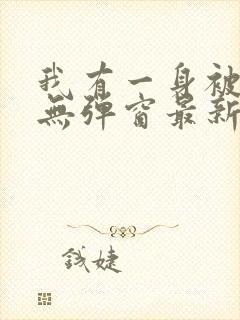 我有一身被
無彈窗最新
錢婕